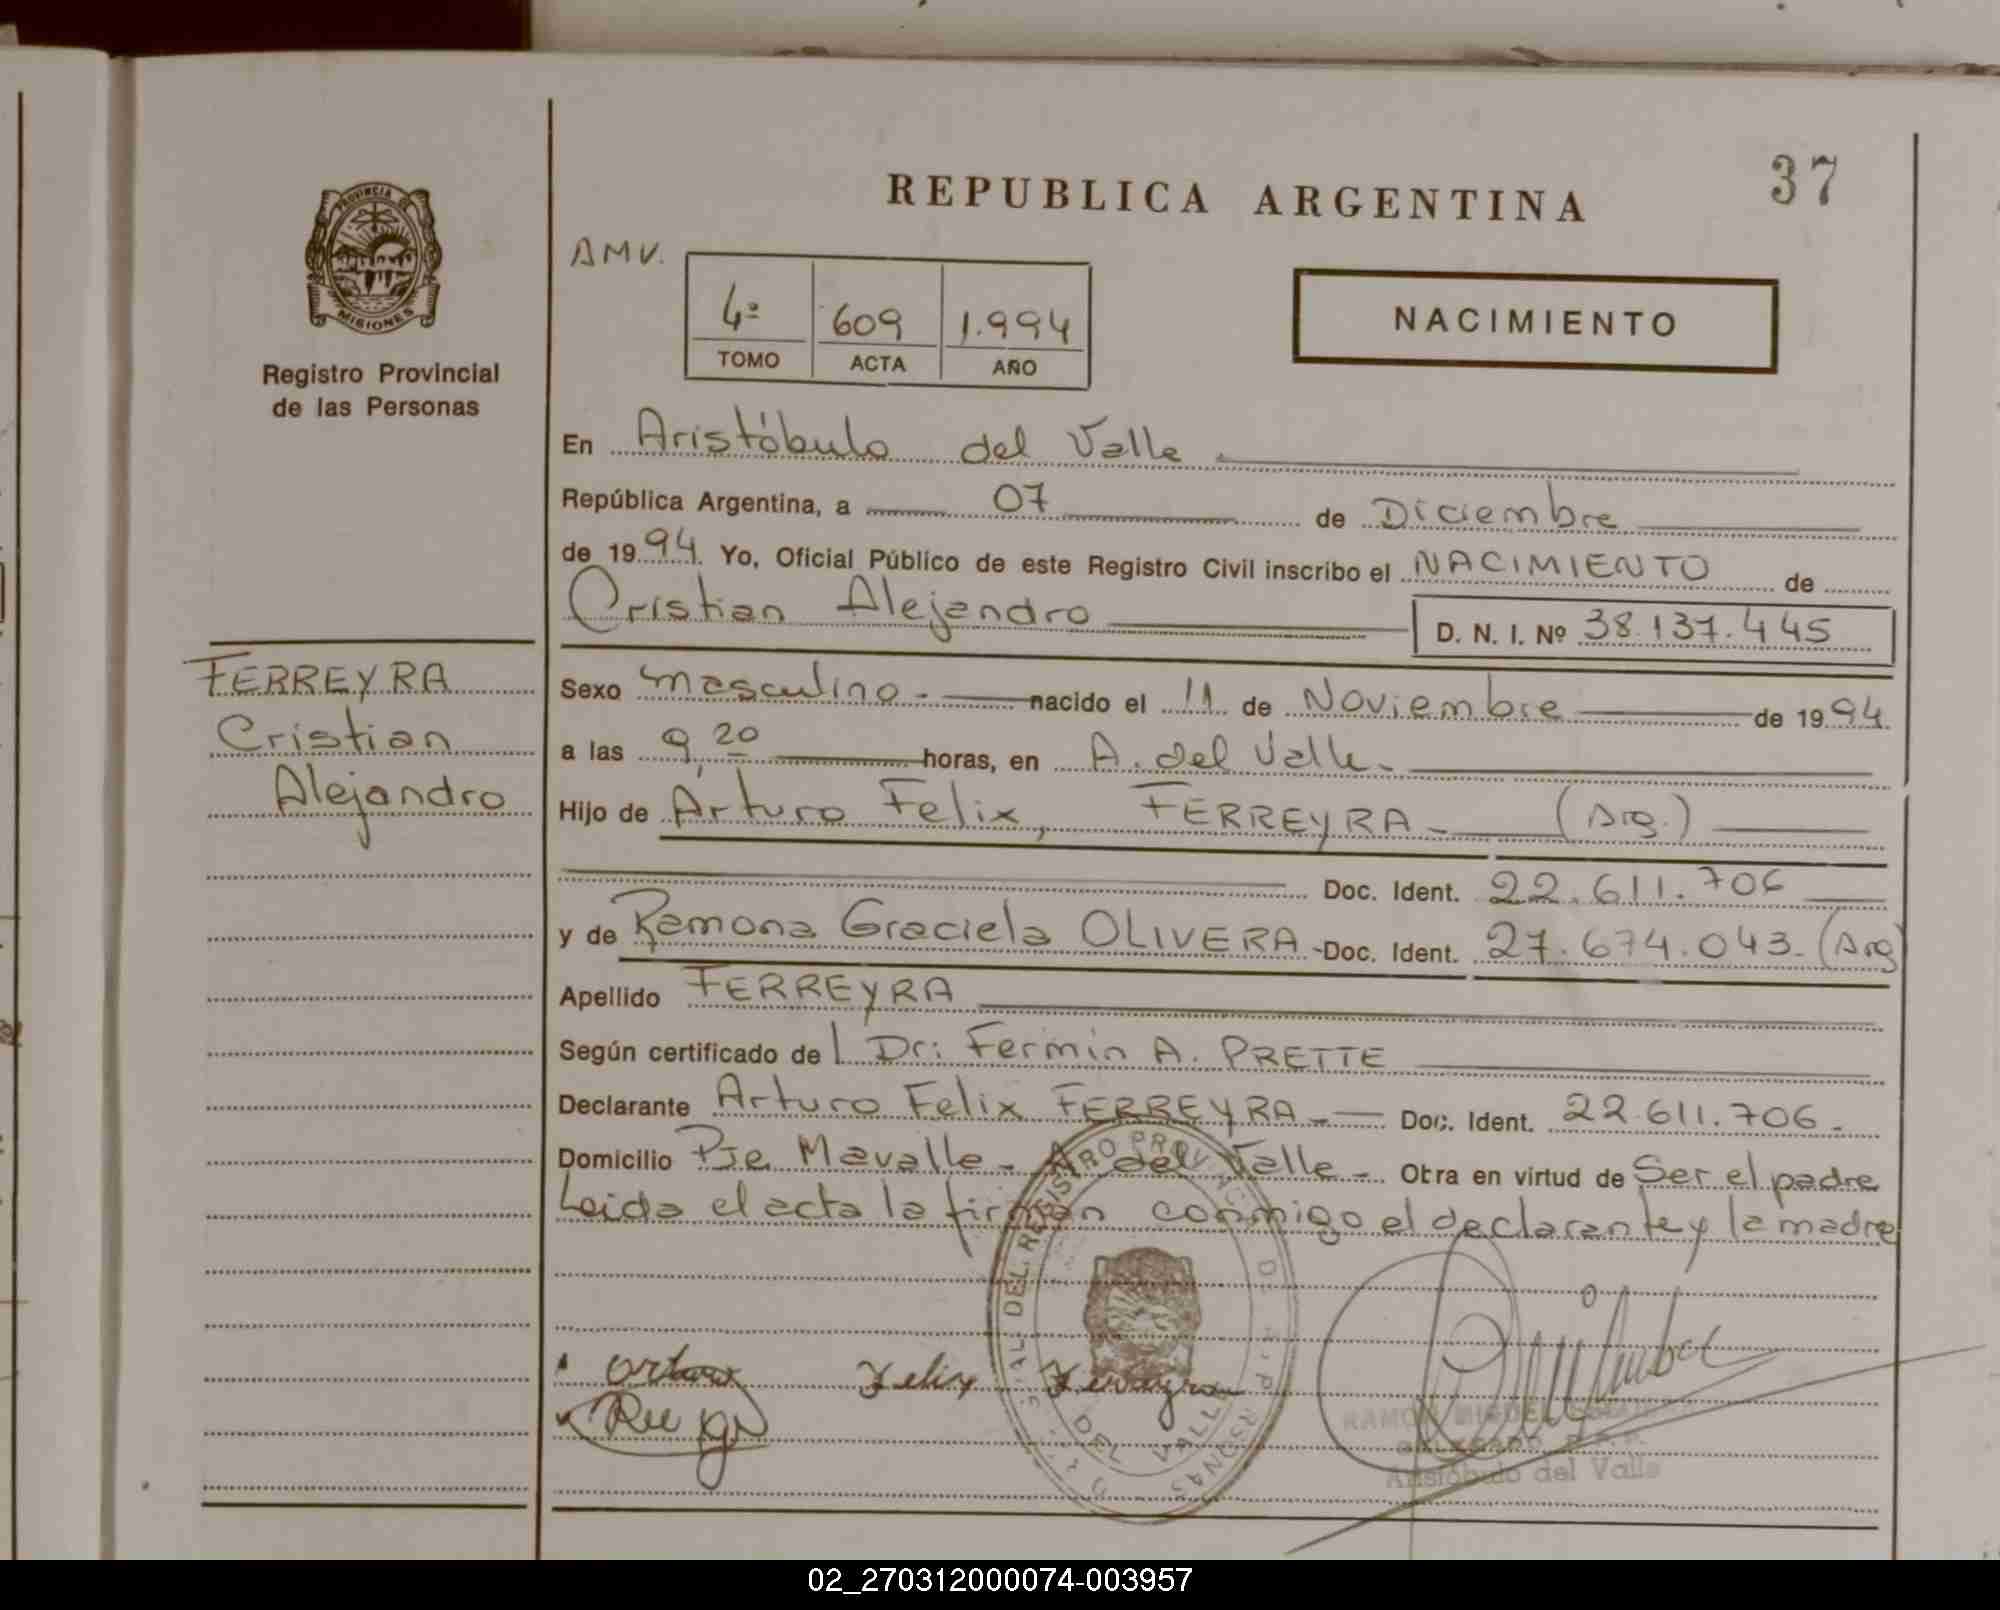 37
REPUBLICA ARGENTINA
PROVINCIA DE
MISIONES
Registro Provincial
de las Personas
AMV.
4º 609 1.994
TOMO ACTA AÑO
NACIMIENTO
En Aristóbulo del Valle
República Argentina, a 07 de Diciembre
de 1994 Yo, Oficial Público de este Registro Civil inscribo el NACIMIENTO de
Cristian Alejandro D. N. I. Nº 38.137.445
FERREYRA
Cristian
Alejandro
Sexo masculino.- nacido el 11 de Noviembre de 1994
a las 9,20 horas, en A. del Valle.-
Hijo de Arturo Felix, FERREYRA - (Arg.)
Doc. Ident. 22.611.706
y de Ramona Graciela OLIVERA - Doc. Ident. 27.674.043.- (Arg
Apellido FERREYRA
Según certificado de l Dr: Fermin A. PRETTE
Declarante Arturo Felix FERREYRA - Doc. Ident. 22.611.706.-
Domicilio Pje Mavalle - A. del Valle - Otra en virtud de Ser el padre
Leida el acta la firman conmigo el declarante y la madre
Arturo Felix Ferreyra
RAMON MIGUEL
DELEGADO R.P.P.
Aristóbulo del Valle
02_270312000074-003957